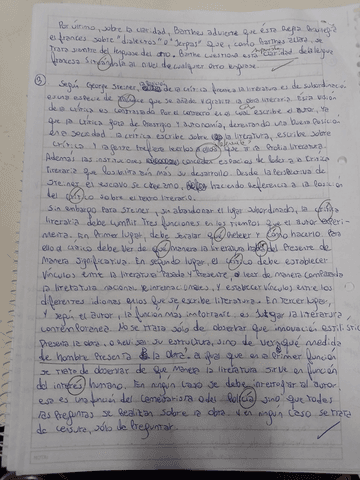 Por último, sobre la claridad, Barthes advierte que ésta
a francés sobre "dialectos" o "Jergas" que, como Barthes aclara, se
trata siempre del lenguaje del otro. Barthes cuestiona esta claridad de la lengua
francesa. Situándola al nivel de cualquier otro lenguaje.
③ Según George Steiner, de la crítica frente a la literatura es de subordinación
es una especie de que se añade y registra a la literatura. Esta visión
de la crítica es contrastada. Por el contrario es a cual escribe el autor, ya
que la crítica goza de Prestigio y Autonomía, demandando una nueva Posición
en la sociedad. La crítica escribe sobre la literatura, escribe sobre
crítica y la gente prefiere leerlos que a la Propia literatura.
Además las instituciones conceden espacios de Poder a la crítica
literaria que Posibilita aún más su desarrollo. Desde la Perspectiva de
Steiner, el esclavo se cree amo, haciendo referencia a la Posición
del crítico sobre el texto literario.
Sin embargo Para Steiner, sin abandonar el lugar subordinado, la crítica
literaria debe cumplir Tres funciones en los tiempos que el autor experi-
menta. En Primer lugar, debe señalar qué Releer y cómo hacerlo. Para
ello el crítico debe ver de qué manera la literatura habla del Presente de
Manera significativa. En segundo lugar, el crítico debe establecer
vínculos entre la literatura Pasada y Presente, leer de manera comparada
la literatura nacional e internacional, y establecer vínculos entre los
diferentes idiomas en los que se escribe literatura. En Tercer lugar,
y según el autor, la función más importante es Juzgar la literatura
contemporánea. No se trata sólo de observar qué innovación estilística
Presenta la obra, o neusa su estructura, sino de ver qué medida
de hombre Presenta la obra. Al igual que en la Primer función
se trata de observar de qué manera la literatura sirve en función
del interés humano. En ningún caso se debe interrogar al autor
esa es una función del comentarista o del Policía, sino que todas
las Preguntas se Realizan sobre la obra. Y en ningún caso se trata
de censura, sólo de Preguntar.